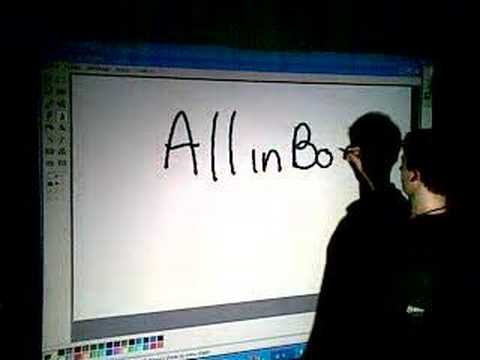 All in Bo